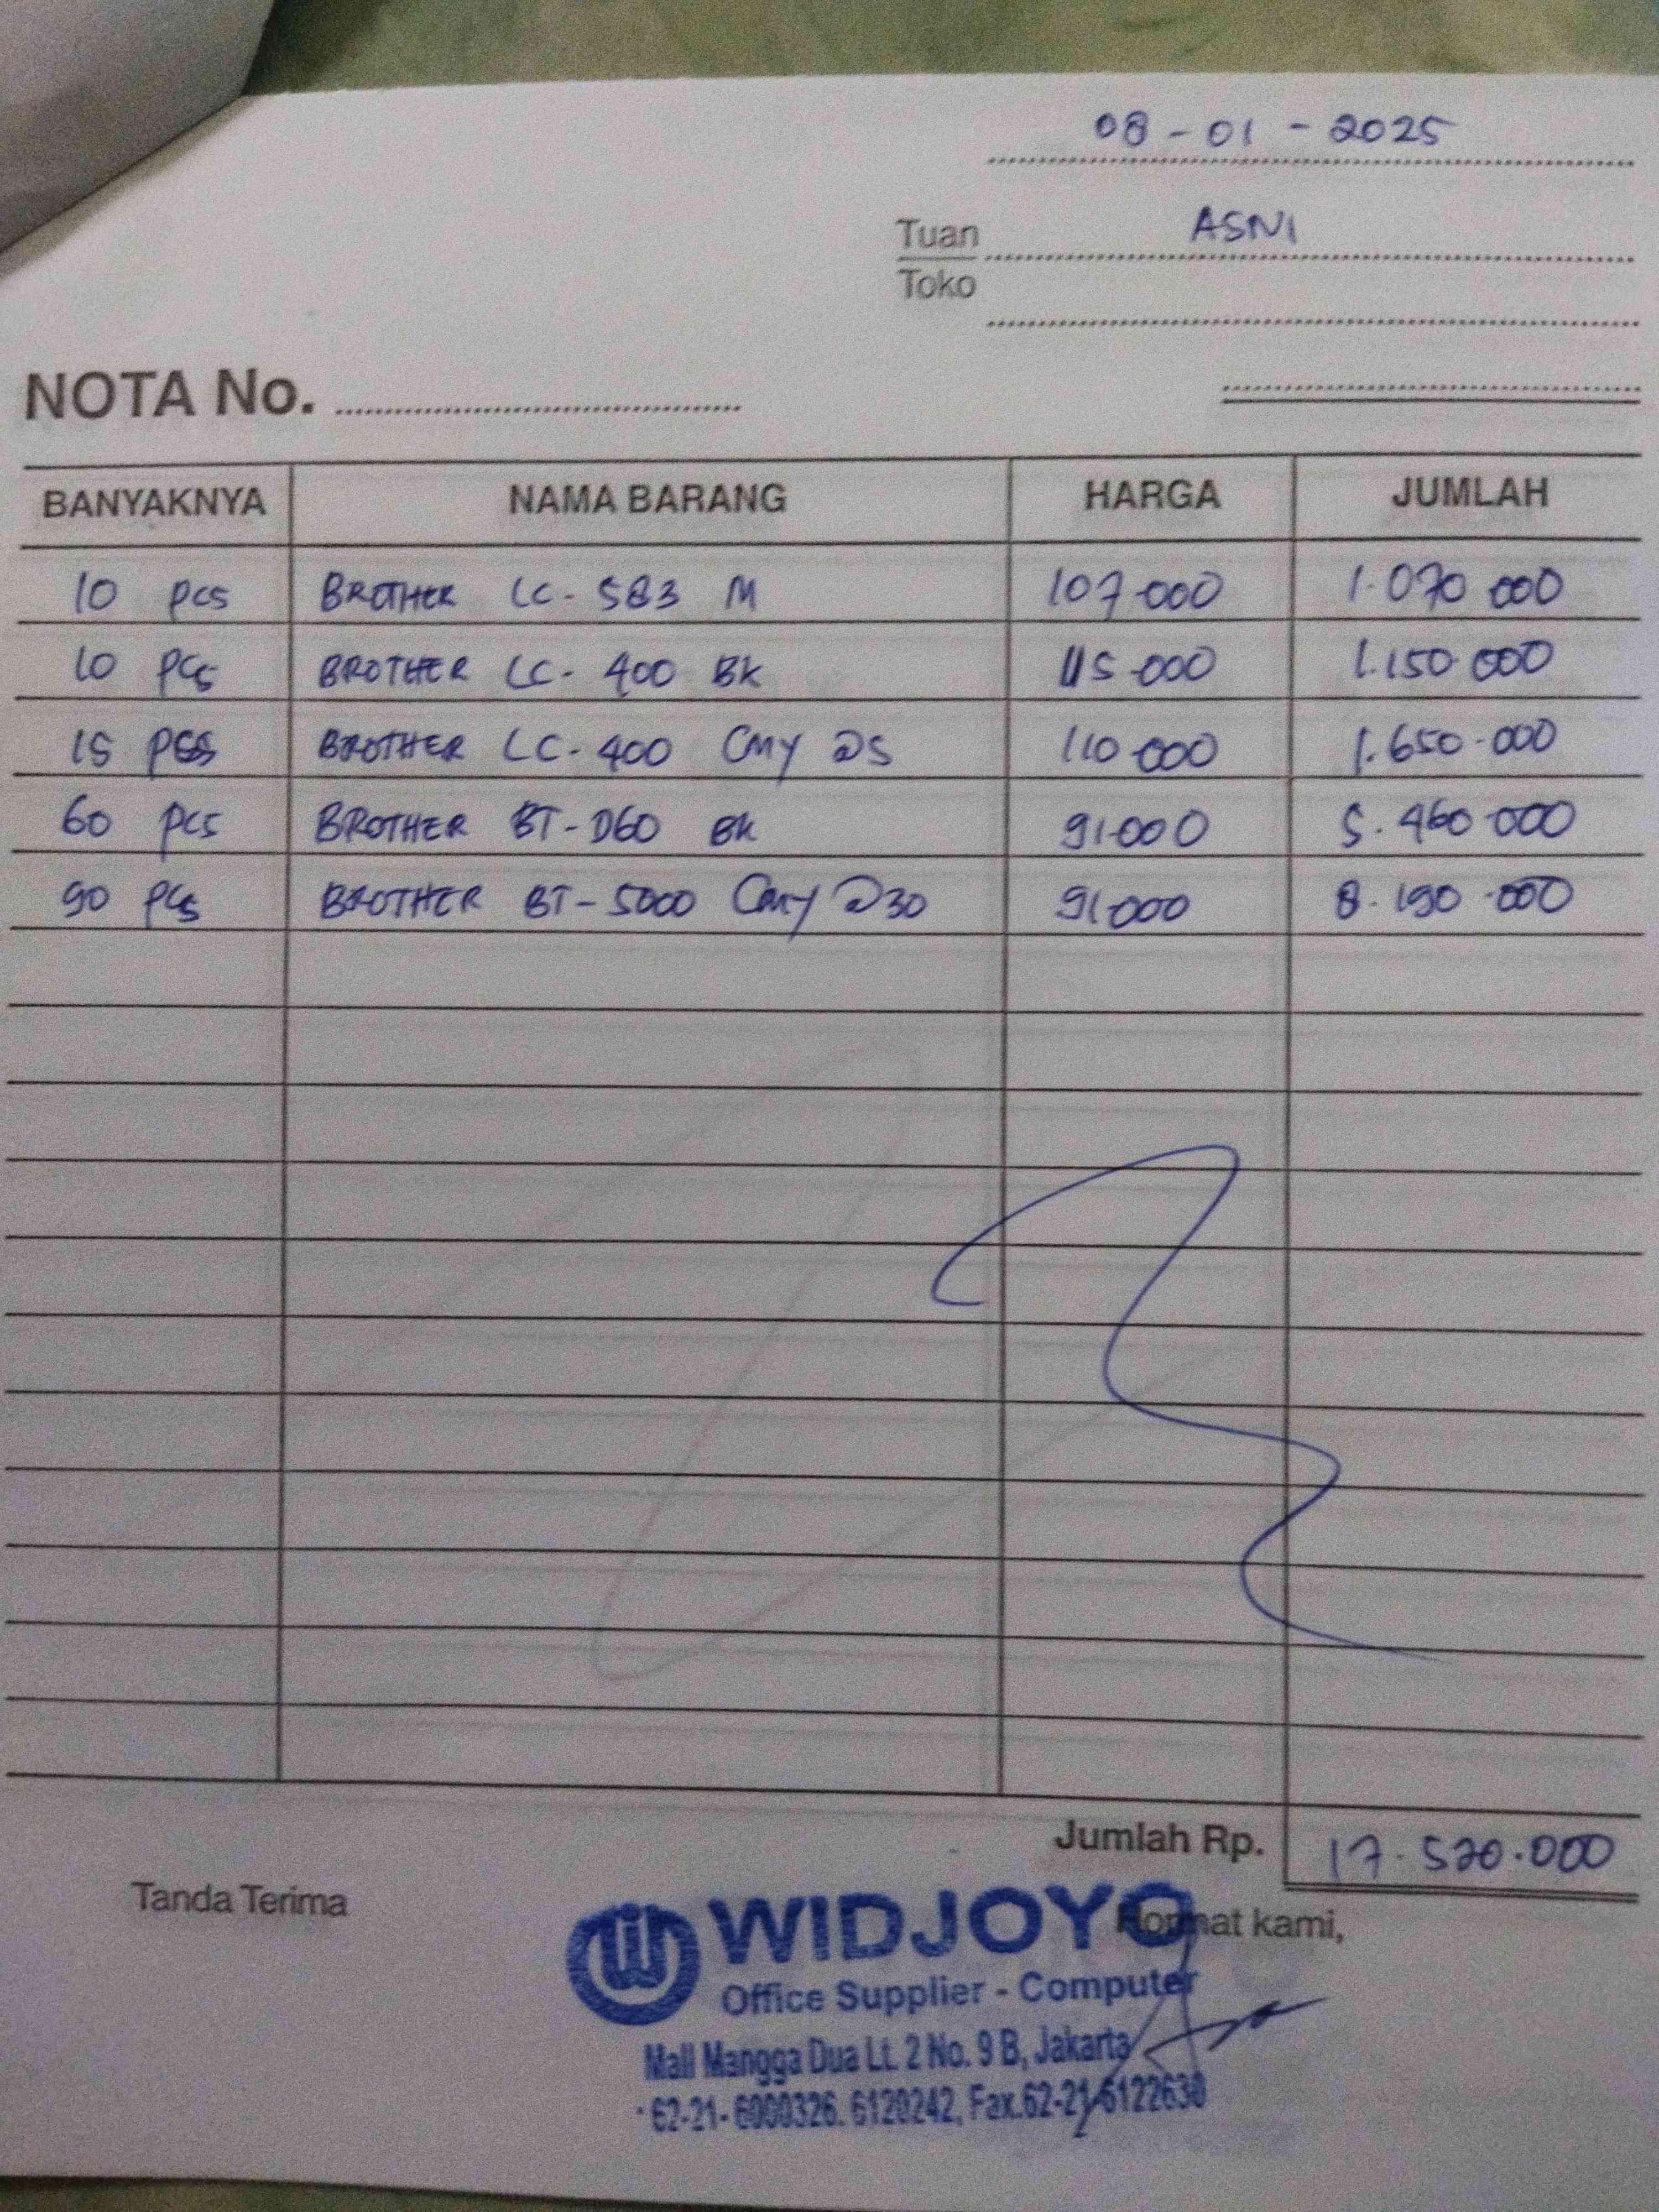 08 - 01 - 2025
Tuan ASNI
Toko
NOTA No.
BANYAKNYA NAMA BARANG HARGA JUMLAH
10 pcs BROTHER LC - 583 M 107.000 1.070.000
10 pcs BROTHER LC - 400 BK 115.000 1.150.000
15 pcs BROTHER LC - 400 CMY @5 110.000 1.650.000
60 pcs BROTHER BT - D60 BK 91.000 5.460.000
90 pcs BROTHER BT - 5000 CMY @30 91.000 8.190.000
Jumlah Rp. 17.520.000
Tanda Terima
Hormat kami,
WIDJOYO
Office Supplier - Computer
Mall Mangga Dua Lt. 2 No. 9 B, Jakarta
6120242, Fax.62-21-6122630